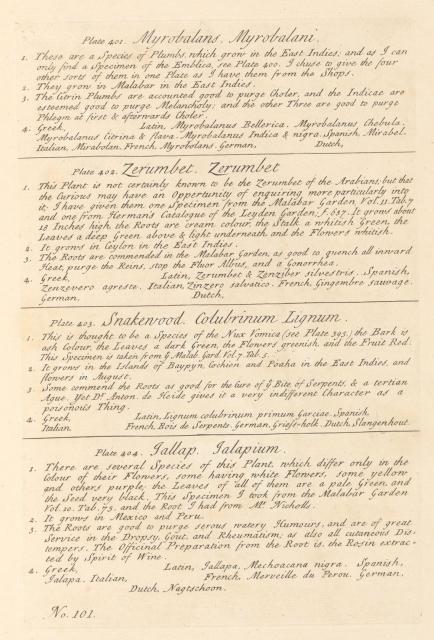 Plate 401. Myrobalans. Myrobalani.
1. These are a Species of Plumbs, which grow in the East Indies; and as I can
only find a Specimen of the Emblica, see Plate 400. I chuse to give the four
other sorts of them in one Plate as I have them from the Shops.
2. They grow in Malabar in the East Indies.
3. The Citrin Plumbs are accounted good to purge Choler, and the Indicae are
esteemed good to purge Melancholy; and the other Three are good to purge
Phlegm at first & afterwards Choler.
4. Greek, Latin, Myrobalanus Bellerica. Myrobalanus Chebula.
Myrobalanus Citrina & flava. Myrobalanus Indica & nigra. Spanish, Mirabel.
Italian, Mirabolan. French, Myrobolans. German, Dutch,
Plate 402. Zerumbet. Zerumbet
1. This Plant is not certainly known to be the Zerumbet of the Arabians; but that
the Curious may have an Opportunity of enquiring more particularly into
it; I have given them one Specimen from the Malabar Garden, Vol. 11. Tab. 7
and one from Herman's Catalogue of the Leyden Garden; f. 637. It grows about
18 Inches high, the Roots are cream colour, the Stalk a whitish Green, the
Leaves a deep Green above & light underneath and the Flowers whitish.
2. It grows in Ceylon in the East Indies.
3. The Roots are commended in the Malabar Garden, as good to quench all inward
Heat, purge the Reins, stop the Fluor Albus, and a Gonorrhea.
4. Greek, Latin, Zerumbet & Zenziber silvestris. Spanish,
Zenzevero agreste. Italian, Zinzero salvatico. French, Gingembre sauvage.
German, Dutch,
Plate 403. Snakewood. Colubrinum Lignum.
1. This is thought to be a Species of the Nux Vomica (see Plate 395.) the Bark is
ash Colour, the Leaves a dark Green, the Flowers greenish and the Fruit Red.
This Specimen is taken from ye Malab. Gard. Vol. 7. Tab. 5.
2. It grows in the Islands of Baypyn, Cochien and Poaha in the East Indies, and
flowers in August.
3. Some commend the Roots as good for the Cure of ye Bite of Serpents, & a tertian
Ague. Yet Dr. Anton. de Heide gives it a very indifferent Character as a
poisonous Thing.
4. Greek, Latin, Lignum colubrinum primum Garciae. Spanish,
Italian, French, Bois de Serpents. German, Griess-holk. Dutch, Slangenhout.
Plate 404. Jallap. Jalapium.
1. There are several Species of this Plant, which differ only in the
Colour of their Flowers, some having white Flowers, some yellow
and others purple; the Leaves of all of them are a pale Green, and
the Seed very black. This Specimen I took from the Malabar Garden
Vol. 10. Tab. 73. and the Root I had from Mr. Nicholls.
2. It grows in Mexico and Peru.
3. The Roots are good to purge serous watery Humours, and are of great
Service in the Dropsy, Gout, and Rheumatism; as also all cutaneous Dis-
tempers. The Officinal Preparation from the Root is, the Rosin extrac-
ted by Spirit of Wine.
4. Greek, Latin, Jallapa. Mechoacana nigra. Spanish,
Jalapa. Italian, French, Merveille du Perou. German,
Dutch, Nagtschoon.
No. 101.